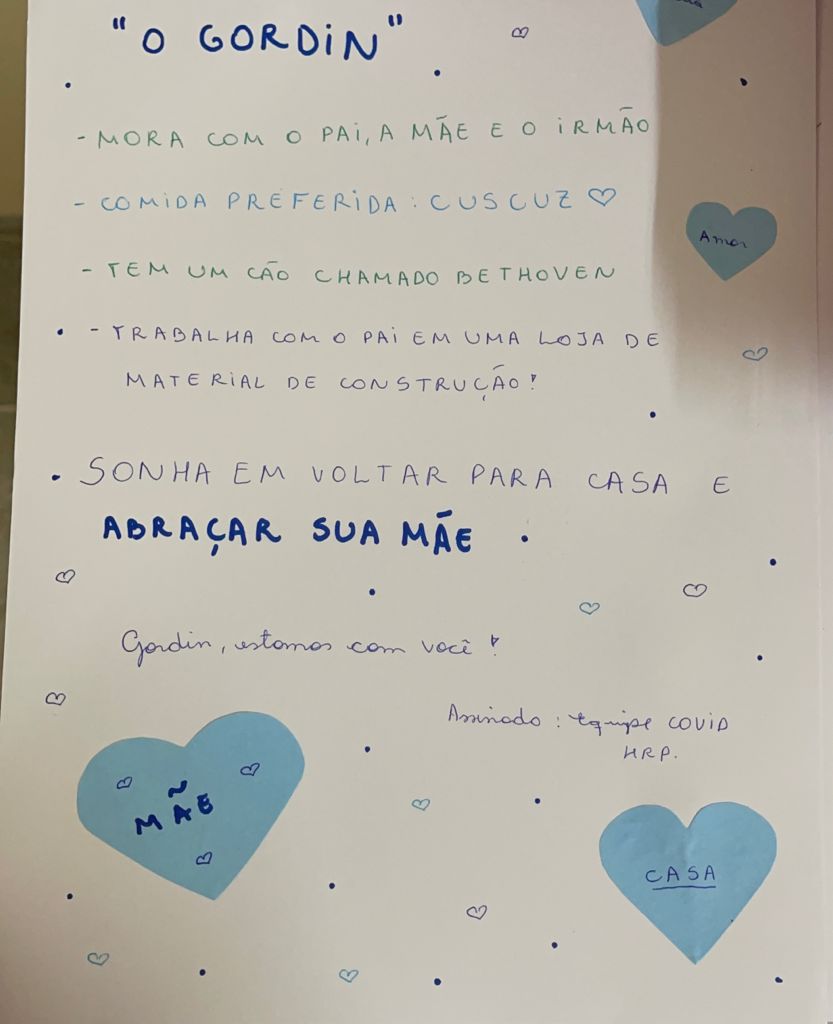 "O GORDIN"
- MORA COM O PAI, A MÃE E O IRMÃO
- COMIDA PREFERIDA: CUSCUZ ♡
Amor
- TEM UM CÃO CHAMADO BETHOVEN
- TRABALHA COM O PAI EM UMA LOJA DE
MATERIAL DE CONSTRUÇÃO!
• SONHA EM VOLTAR PARA CASA E
ABRAÇAR SUA MÃE.
Gordin, estamos com você!
Assinado: equipe COVID
HRP.
MÃE
CASA